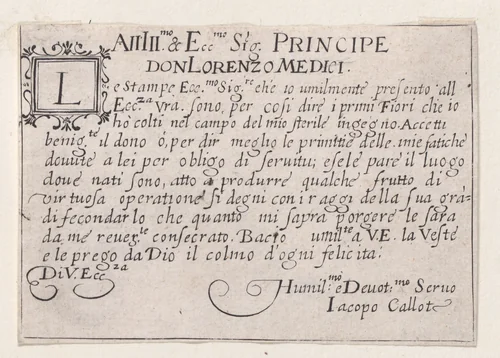 All Ill.mo & Ecc.mo Sig. PRINCIPE
DON LORENZO MEDICI.
Le Stampe Ecc.mo Sig.re che io umilmente presento all
Ecc.za vra. sono, per cosi dire i primi Fiori che io
hò colti nel campo del mio sterile ingegno. Accetti
benig.te il dono ò, per dir meglio le primitie delle mie fatiche
douute a lei per obligo di seruitu; e se le pare il luogo
doue nati sono, atto a produrre qualche frutto di
virtuosa operatione si degni con i raggi della sua grā-
di fecondarlo che quanto mi saprà porgere le sarà
da me reuer.te consecrato. Bacio umil.te a V.E. la Veste
e le prego da Dio il colmo d'ogni felicita:
Di V. Ecc.za
Humil.mo e Deuot.mo Seruo
Iacopo Callot